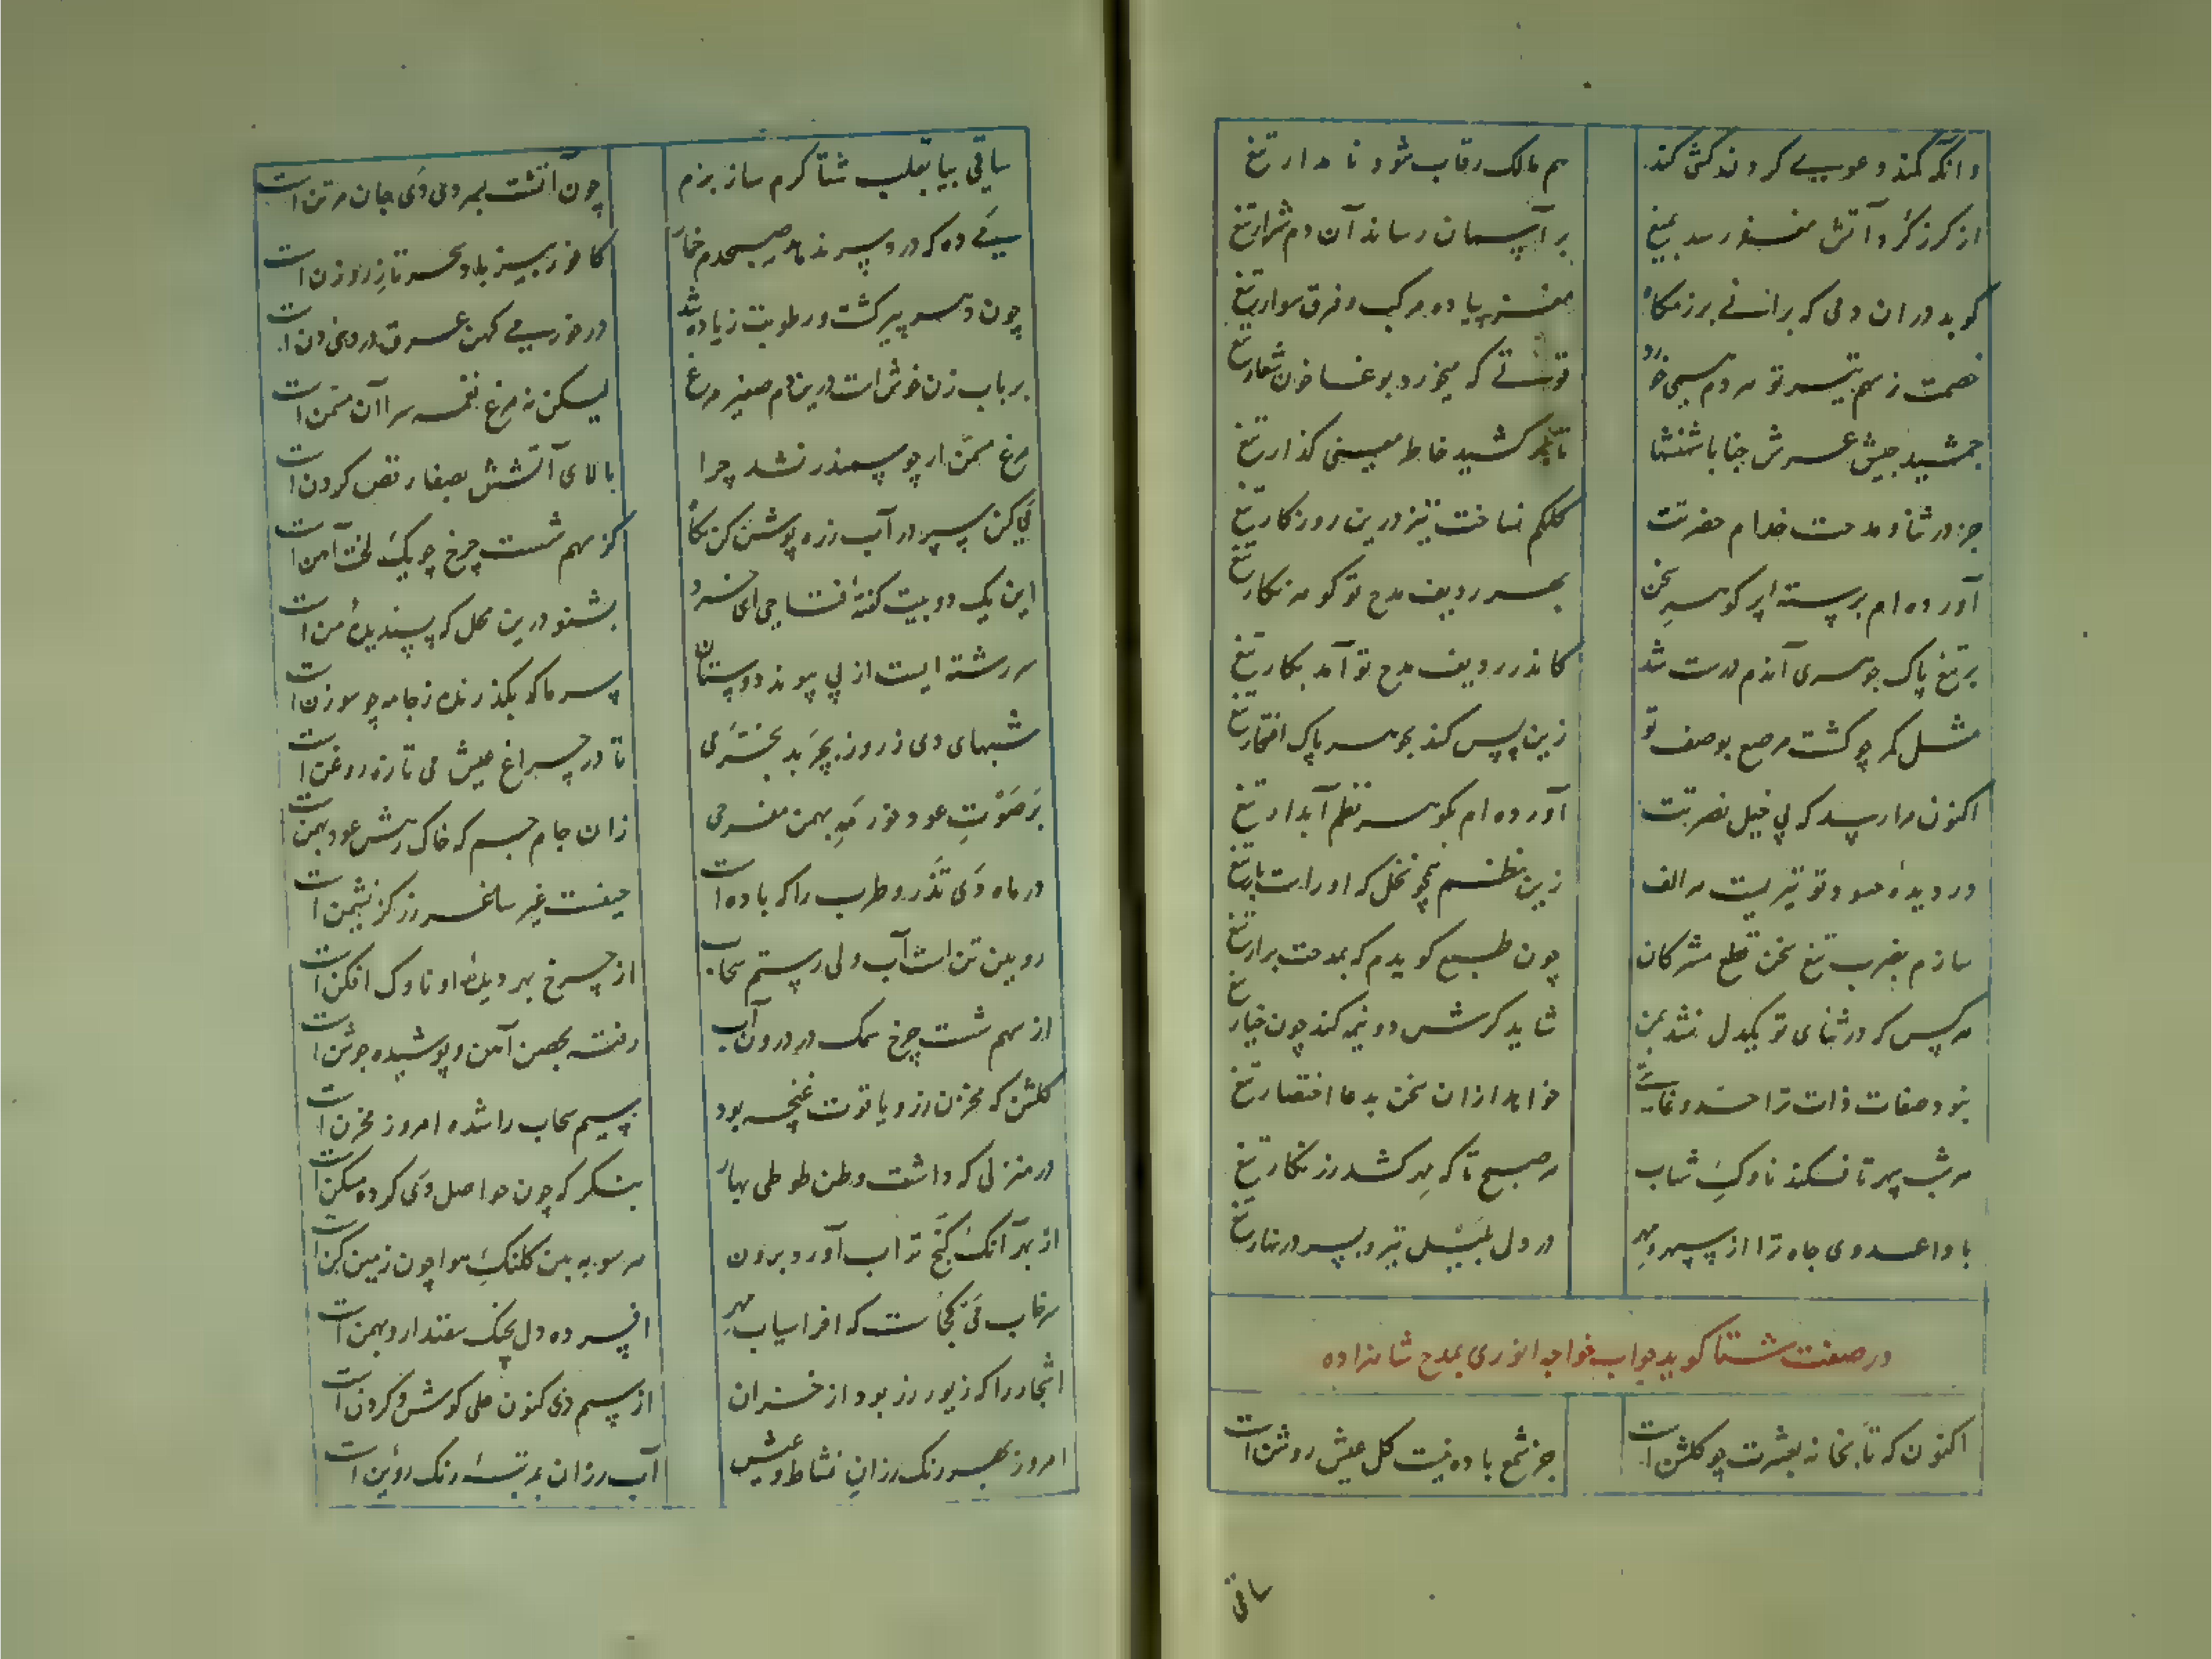 وانکه کمند دعویی کردندکشی کند هم مالک رقاب شود نامدار تیغ
از کرز کرد و آتش رسد بمیغ بر آسمان رساند آن دم شرار تیغ
کو بدوران دمی که برانی برزمکاه مغز پیاده مرکب و فرق سوار تیغ
خصمت ز سهم تیر تو مردم همی خورد که میخورد بوغا خون شعار تیغ
جمشید جیش عرش جنابا شهنشها کشید خاطر معنی کذار تیغ
جز در ثنا و مدحت خدام حضرتت کلکم نساخت تیز درین روزکار تیغ
آورده ام برسته ابر کوهر سخن بهر ردیف مدح تو کوهر نکار تیغ
بر تیغ پاک جوهری آندم درست شد کاندر ردیف مدح تو آمد بکار تیغ
مثل کمر چو کشت مرصع بوصف تو زین پس کند بجوهر پاک افتخار تیغ
اکنون مرا رسد که پی خیل نصرتت آورده ام بکوهر نظم آبدار تیغ
در دیدهٔ حسود تو تیریست هر الف زین نظم همچو نخل که اوراست بار تیغ
سازم بضرب تیغ سخن قطع مشرکان چون طبع کویدم که بمدحت برار تیغ
هر کس که در ثنای تو یکدل نشد بمن شاید کرش دو نیمه کند چون خیار تیغ
نبود صفات ذات ترا حد و غایتی خواهد ازان سخن بدعا اختصار تیغ
هر شب سپهر تا فکند ناوک شهاب هر صبح تا که مهر کشد زرنکار تیغ
بادا عدوی جاه ترا از سپهر و مهر در دل تیر و بسر در نهار تیغ
در صفت شتا کوید بجواب خواجه انوری بمدح شاهزاده
اکنون که تابخانه بعشرت چو کلشن است جز شمع باده نیست کل عیش روشن است
ساقی
ساقی بیا بقلب شتا کرم ساز بزم چون آتشت بمردی دی جان مر تن است
می ده که درد سر ندهد صبحدم خمار کافور بیز باد سحر تا ز روزن است
چون دهر پیر کشت و رطوبت زیاده شد در خور می کهن عرق در دی دن است
بر باب زن خوش است درین دم صفیر مرغ لیکن نه مرغ نغمه سرا آن سمن است
مرغ سمن ار چو سمندر نشد چرا بالای آتشش بصفا رقص کردن است
پی کن سپر در آب زره پوشش کن نکاه کز سهم شست چرخ چو یک لخت آهن است
این یک دو بیت کفتهٔ فتاحی ای خسرو بشنو درین محل که پسندیدهٔ من است
سر رشته ایست از پی پیوند دوستان سرما که بکذرنده ز جامه چو سوزن است
شبهای دی ز روز بچربد بخرمی تا در چراغ عیش می تازه روغن است
بر صوت عود خور مه بهمن مفرحی زان جام جسم که خاک رهش عود بهمن است
در ماه دی تذرو طرب را که باده است حیفست غیر ساغر زر کز نشیمن است
رویین تن است آب ولی رستم سحاب از چرخ بهر دیدهٔ او ناوک افکن است
از سهم شست چرخ سمک در درون آب رفته بحصن آهن و پوشیده جوشن است
کلشن که مخزن زر و یاقوت غنچه بود سیم سحاب را شده امروز مخزن است
در منزلی که داشت وطن طوطی بهار بنکر که چون حواصل دی کرده مسکن است
از بهر آنک کنج تراب آورد برون هر سو به بین کلنک هوا چون زمین کن است
سرخاب می کجاست که افراسیاب مهر افسرده دل بچنک سفندار و بهمن است
اشجار را که زیور زر بود از خزان از سیم دی کنون حلی کوش و کردن است
امروز بهر رنک رزان نشاط و عیش آب رزان بمرتبهٔ رنک روئین است